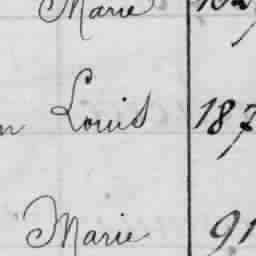 Marie
Louis 187
Marie 91